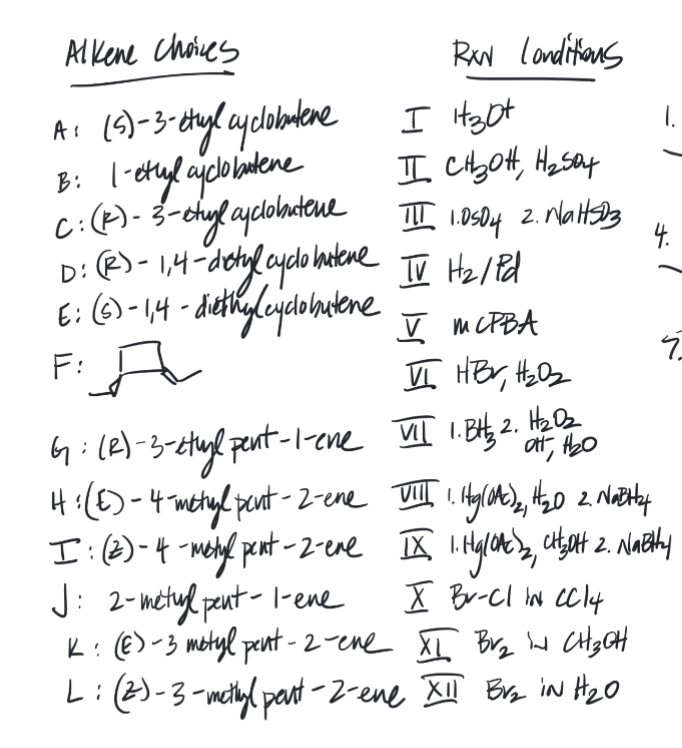 Alkene Choices
A: (S)-3-ethyl cyclobutene
B: 1-ethyl cyclobutene
C: (R)-3-ethyl cyclobutene
D: (R)-1,4-diethyl cyclobutene
E: (S)-1,4-diethylcyclobutene
F:
G: (R)-3-ethyl pent-1-ene
H: (E)-4-methyl pent-2-ene
I: (Z)-4-methyl pent-2-ene
J: 2-methyl pent-1-ene
K: (E)-3 methyl pent-2-ene
L: (Z)-3-methyl pent-2-ene
Rxn Conditions
I H3O+
II CH3OH, H2SO4
III 1.OsO4 2. NaHSO3
IV H2/Pd
V mCPBA
VI HBr, H2O2
VII 1.BH3 2. H2O2
OH-, H2O
VIII 1.Hg(OAc)2, H2O 2. NaBH4
IX 1.Hg(OAc)2, CH3OH 2. NaBH4
X Br-Cl in CCl4
XI Br2 in CH3OH
XII Br2 in H2O
1.
4.
7.